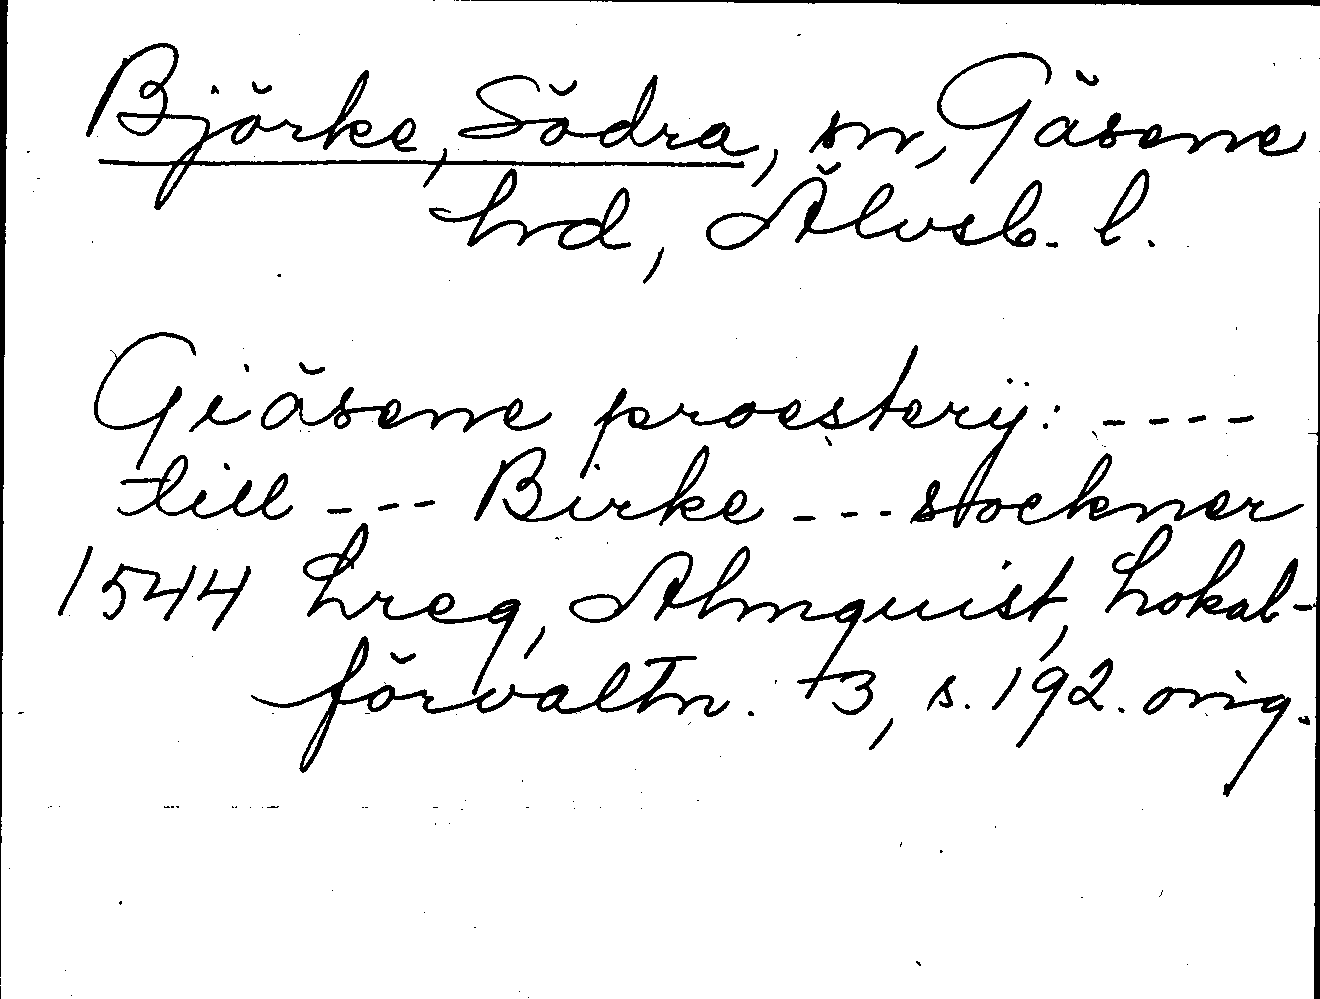 Björke, Södra, sn, Gäsene
hd, Älvsb. l.
Giäsene proesterij: ----
till --- Birke --- sockner
1544 hreg, Almquist, Lokal-
förvaltn. 3, s. 192. orig.